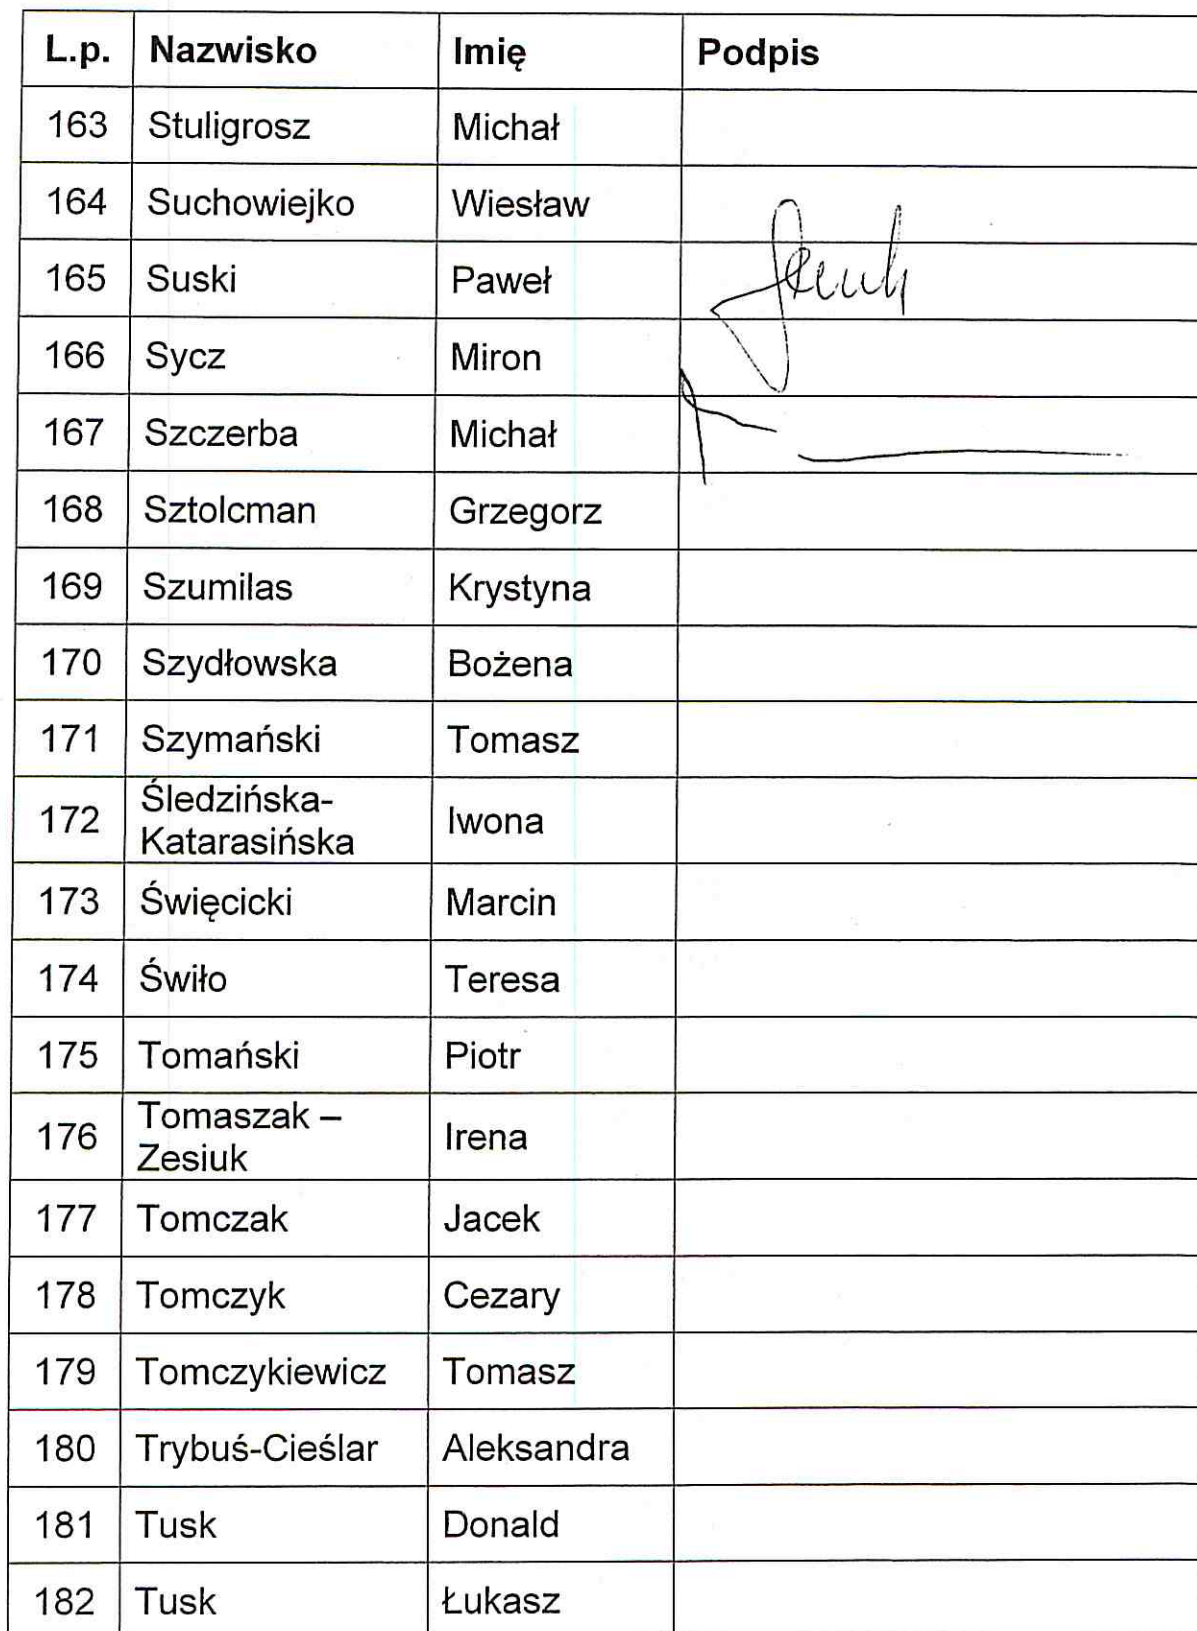 L.p. Nazwisko Imię Podpis
163 Stuligrosz Michał
164 Suchowiejko Wiesław
165 Suski Paweł
166 Sycz Miron
167 Szczerba Michał
168 Sztolcman Grzegorz
169 Szumilas Krystyna
170 Szydłowska Bożena
171 Szymański Tomasz
172 Śledzińska-
Katarasińska Iwona
173 Święcicki Marcin
174 Świło Teresa
175 Tomański Piotr
176 Tomaszak –
Zesiuk Irena
177 Tomczak Jacek
178 Tomczyk Cezary
179 Tomczykiewicz Tomasz
180 Trybuś-Cieślar Aleksandra
181 Tusk Donald
182 Tusk Łukasz